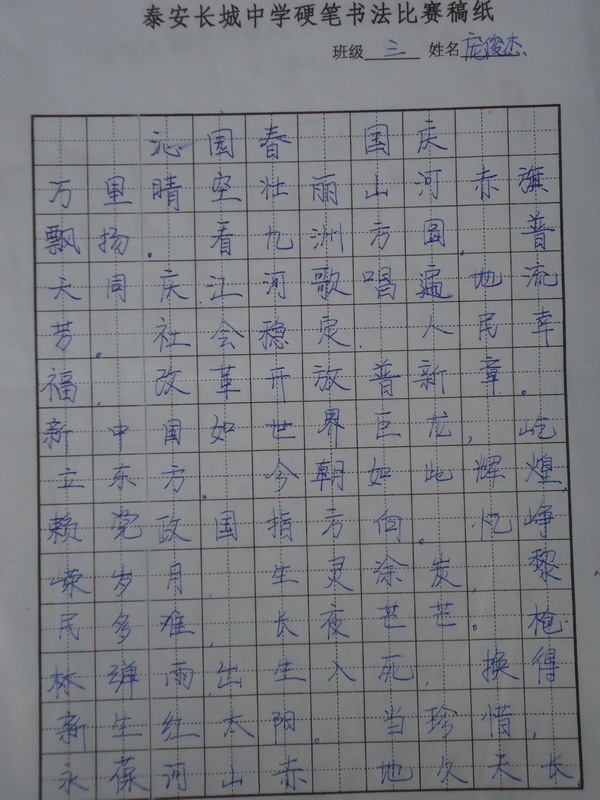 泰安长城中学硬笔书法比赛稿纸
班级 三 姓名 庞俊杰
沁园春 国庆
万里晴空壮丽山河赤旗
飘扬。看九洲方圆,普
天同庆,江河歌唱遍地流
芳。社会稳定.人民幸
福,改革开放普新章。
新中国如世界巨龙,屹
立东方。今朝如此辉煌,
赖党政国指方向。忆峥
嵘岁月,生灵涂炭,黎
民多难,长夜芒芒。枪
林弹雨,出生入死,换得
新生红太阳。当珍惜,
永葆河山赤 地久天长